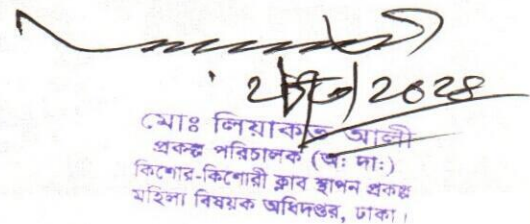 ২০২৪
মোঃ লিয়াকত আলী
প্রকল্প পরিচালক (অ: দা:)
কিশোর-কিশোরী ক্লাব স্থাপন প্রকল্প
মহিলা বিষয়ক অধিদপ্তর, ঢাকা।